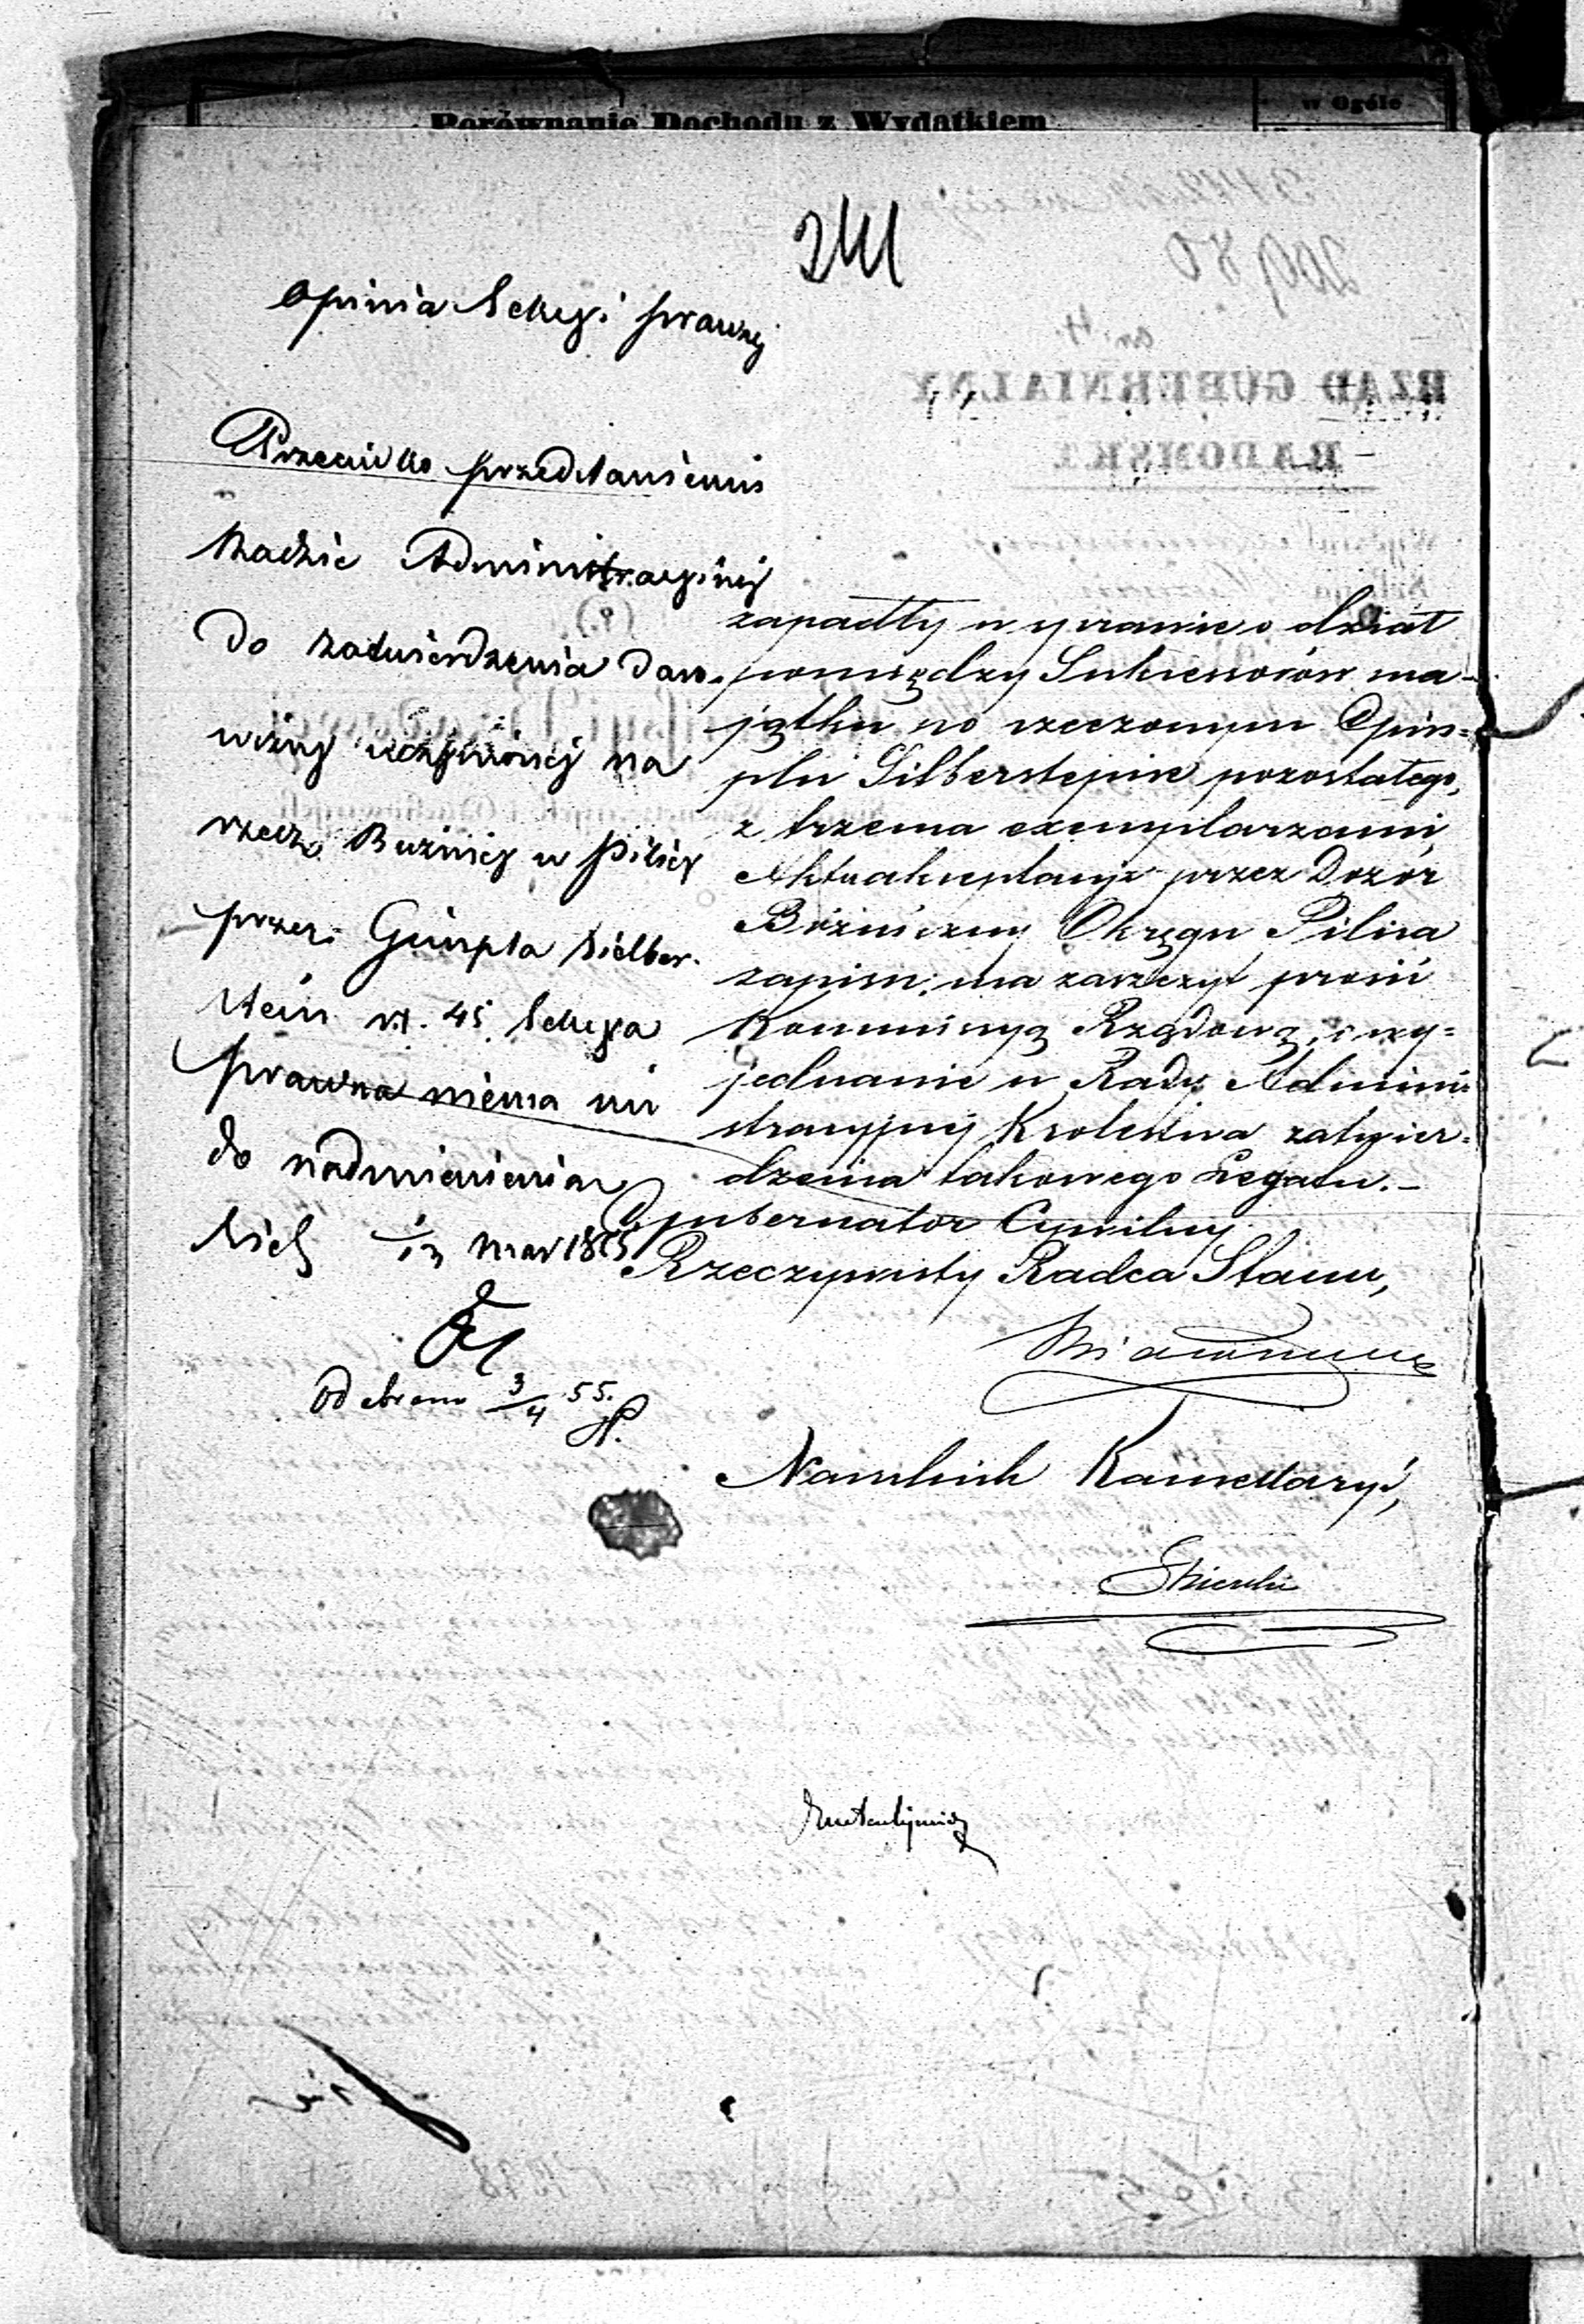 Porównanie Dochodu z Wydatkiem
w Ogóle
241
Opinia Sekcyi prawnej
Przeciwko przedstawieniu
Radzie Administracyinej
do zatwierdzenia daro-
wizny uczynionej na
rzecz Buznicy w Pilicy
przez Gimpla Silber-
stein rs. 45 Sekcya
prawna niema nic
do nadmienienia
1/13 Mar 1855
Odebrano 3/4 55.
zapadły w sprawie o dział
pomiędzy Sukcessorów ma-
jątku po rzeczonym Gim-
plu Silbersteinie pozostałego,
z trzema exemplarzami
Aktu akceptacyi przez Dozór
Bóżniczny Okręgu Pilica
zapisu, ma zaszczyt prosić
Kommissyą Rządową, o wy-
jednanie w Rady Admini-
stracyjnej Królestwa zatwier-
dzenia takowego Legatu.-
Gubernator Cywilny
Rzeczywisty Radca Stanu,
Naczelnik Kancellaryi,